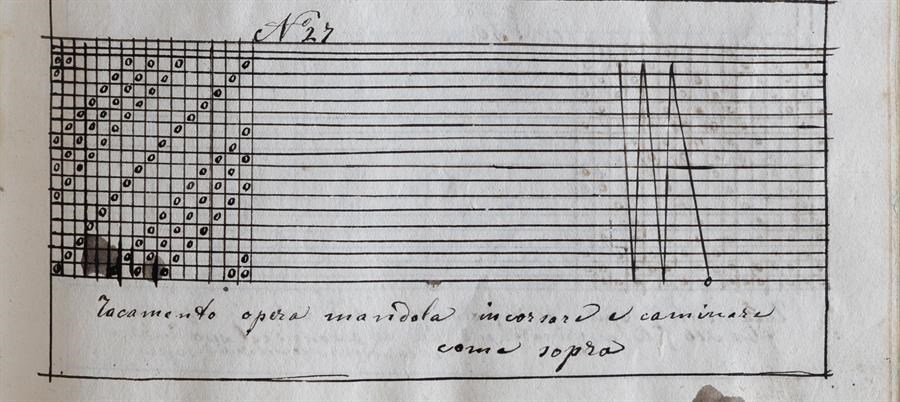 No 27
Tacamento opera mandola incorsare e caminare
come sopra